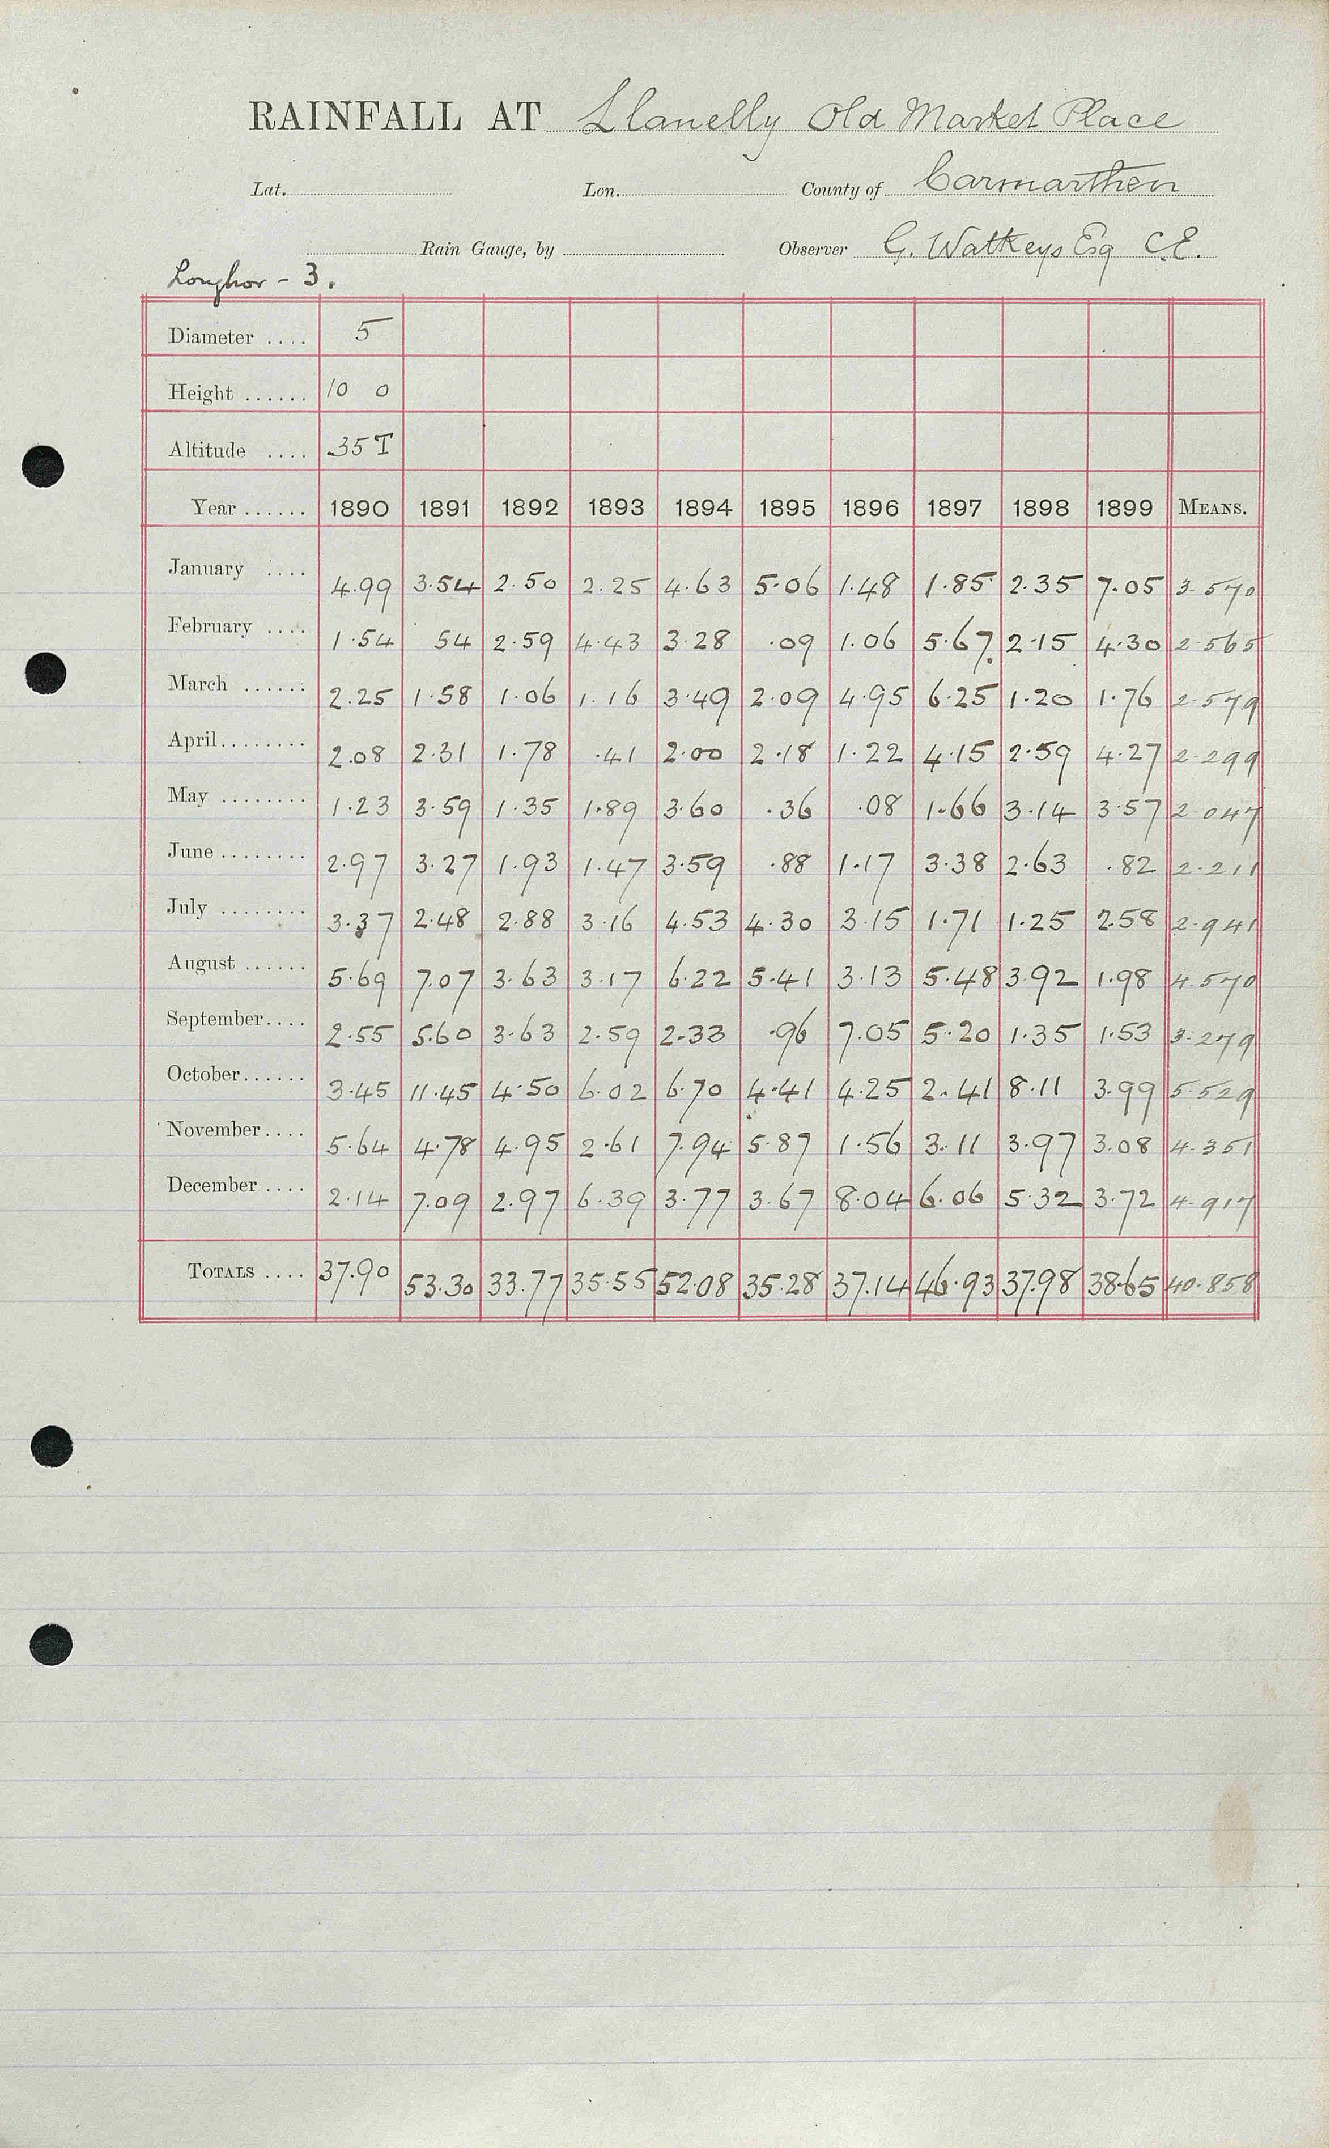 RAINFALL AT Llanelly Old Market Place
Lat. Lon. County of Carmarthen
Rain Gauge, by Observer G. Watkeys Esq C.E.
Loughor - 3.
Diameter .... 5
Height ...... 10 0
Altitude .... 35 T
Year ...... 1890 1891 1892 1893 1894 1895 1896 1897 1898 1899 MEANS.
January .... 4.99 3.54 2.50 2.25 4.63 5.06 1.48 1.85 2.35 7.05 3.570
February .... 1.54 54 2.59 4.43 3.28 .09 1.06 5.67 2.15 4.30 2.565
March ...... 2.25 1.58 1.06 1.16 3.49 2.09 4.95 6.25 1.20 1.76 2.579
April........ 2.08 2.31 1.78 .41 2.00 2.18 1.22 4.15 2.59 4.27 2.299
May ........ 1.23 3.59 1.35 1.89 3.60 .36 .08 1.66 3.14 3.57 2.047
June ........ 2.97 3.27 1.93 1.47 3.59 .88 1.17 3.38 2.63 .82 2.211
July ........ 3.37 2.48 2.88 3.16 4.53 4.30 3.15 1.71 1.25 2.58 2.941
August ...... 5.69 7.07 3.63 3.17 6.22 5.41 3.13 5.48 3.92 1.98 4.570
September.... 2.55 5.60 3.63 2.59 2.33 .96 7.05 5.20 1.35 1.53 3.279
October...... 3.45 11.45 4.50 6.02 6.70 4.41 4.25 2.41 8.11 3.99 5.529
November.... 5.64 4.78 4.95 2.61 7.94 5.87 1.56 3.11 3.97 3.08 4.351
December .... 2.14 7.09 2.97 6.39 3.77 3.67 8.04 6.06 5.32 3.72 4.917
TOTALS .... 37.90 53.30 33.77 35.55 52.08 35.28 37.14 46.93 37.98 38.65 40.858